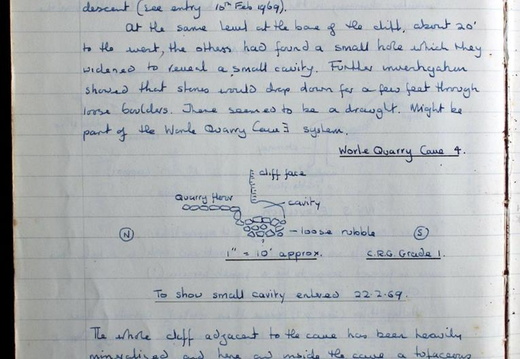 descent (see entry 10th Feb 1969).
At the same level at the base of the cliff, about 20'
to the west, the others had found a small hole which they
widened to reveal a small cavity. Further investigation
showed that stones would drop down for a few feet through
loose boulders. There seemed to be a draught. Might be
part of the Worle Quarry Cave 3 system.
Worle Quarry Cave 4.
cliff face
Quarry floor
cavity
loose rubble
N
S
1" = 10' approx.
C.R.G. Grade 1.
To show small cavity entered 22-2-69.
The whole cliff adjacent to the cave has been heavily
mineralised and here and inside the cave a tufaceous